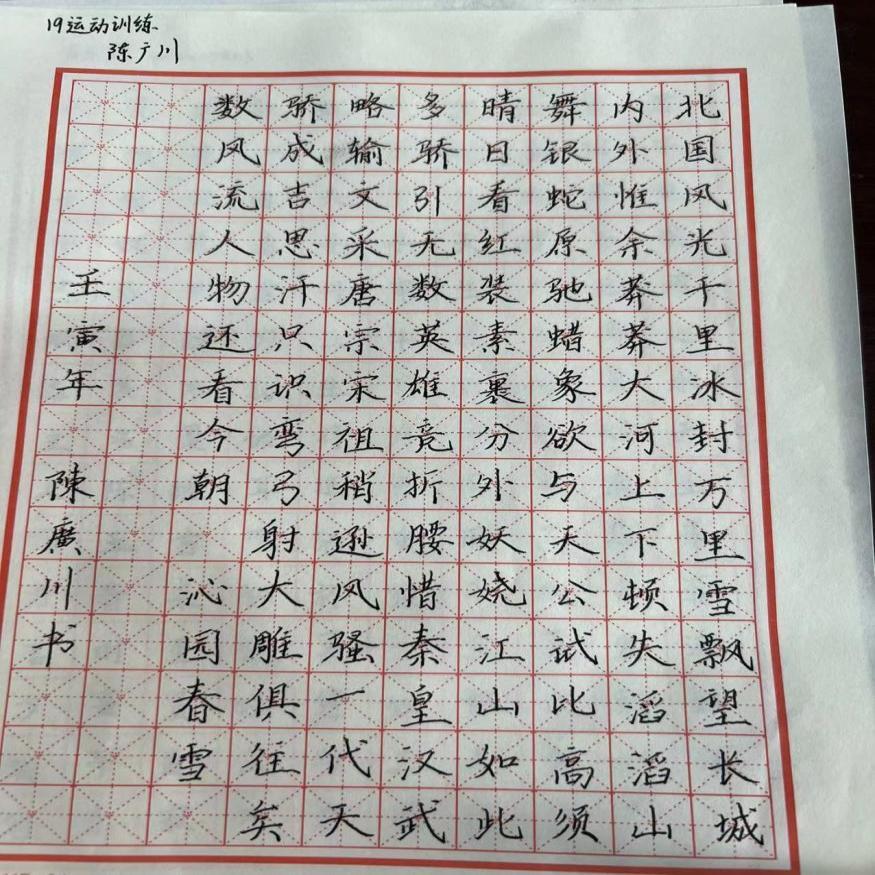 19运动训练
陈广川
北国风光千里冰封万里雪飘望长城
内外惟余莽莽大河上下顿失滔滔山
舞银蛇原驰蜡象欲与天公试比高须
晴日看红装素裹分外妖娆江山如此
多骄引无数英雄竞折腰惜秦皇汉武
略输文采唐宗宋祖稍逊风骚一代天
骄成吉思汗只识弯弓射大雕俱往矣
数风流人物还看今朝 沁园春雪
壬寅年 陳廣川书